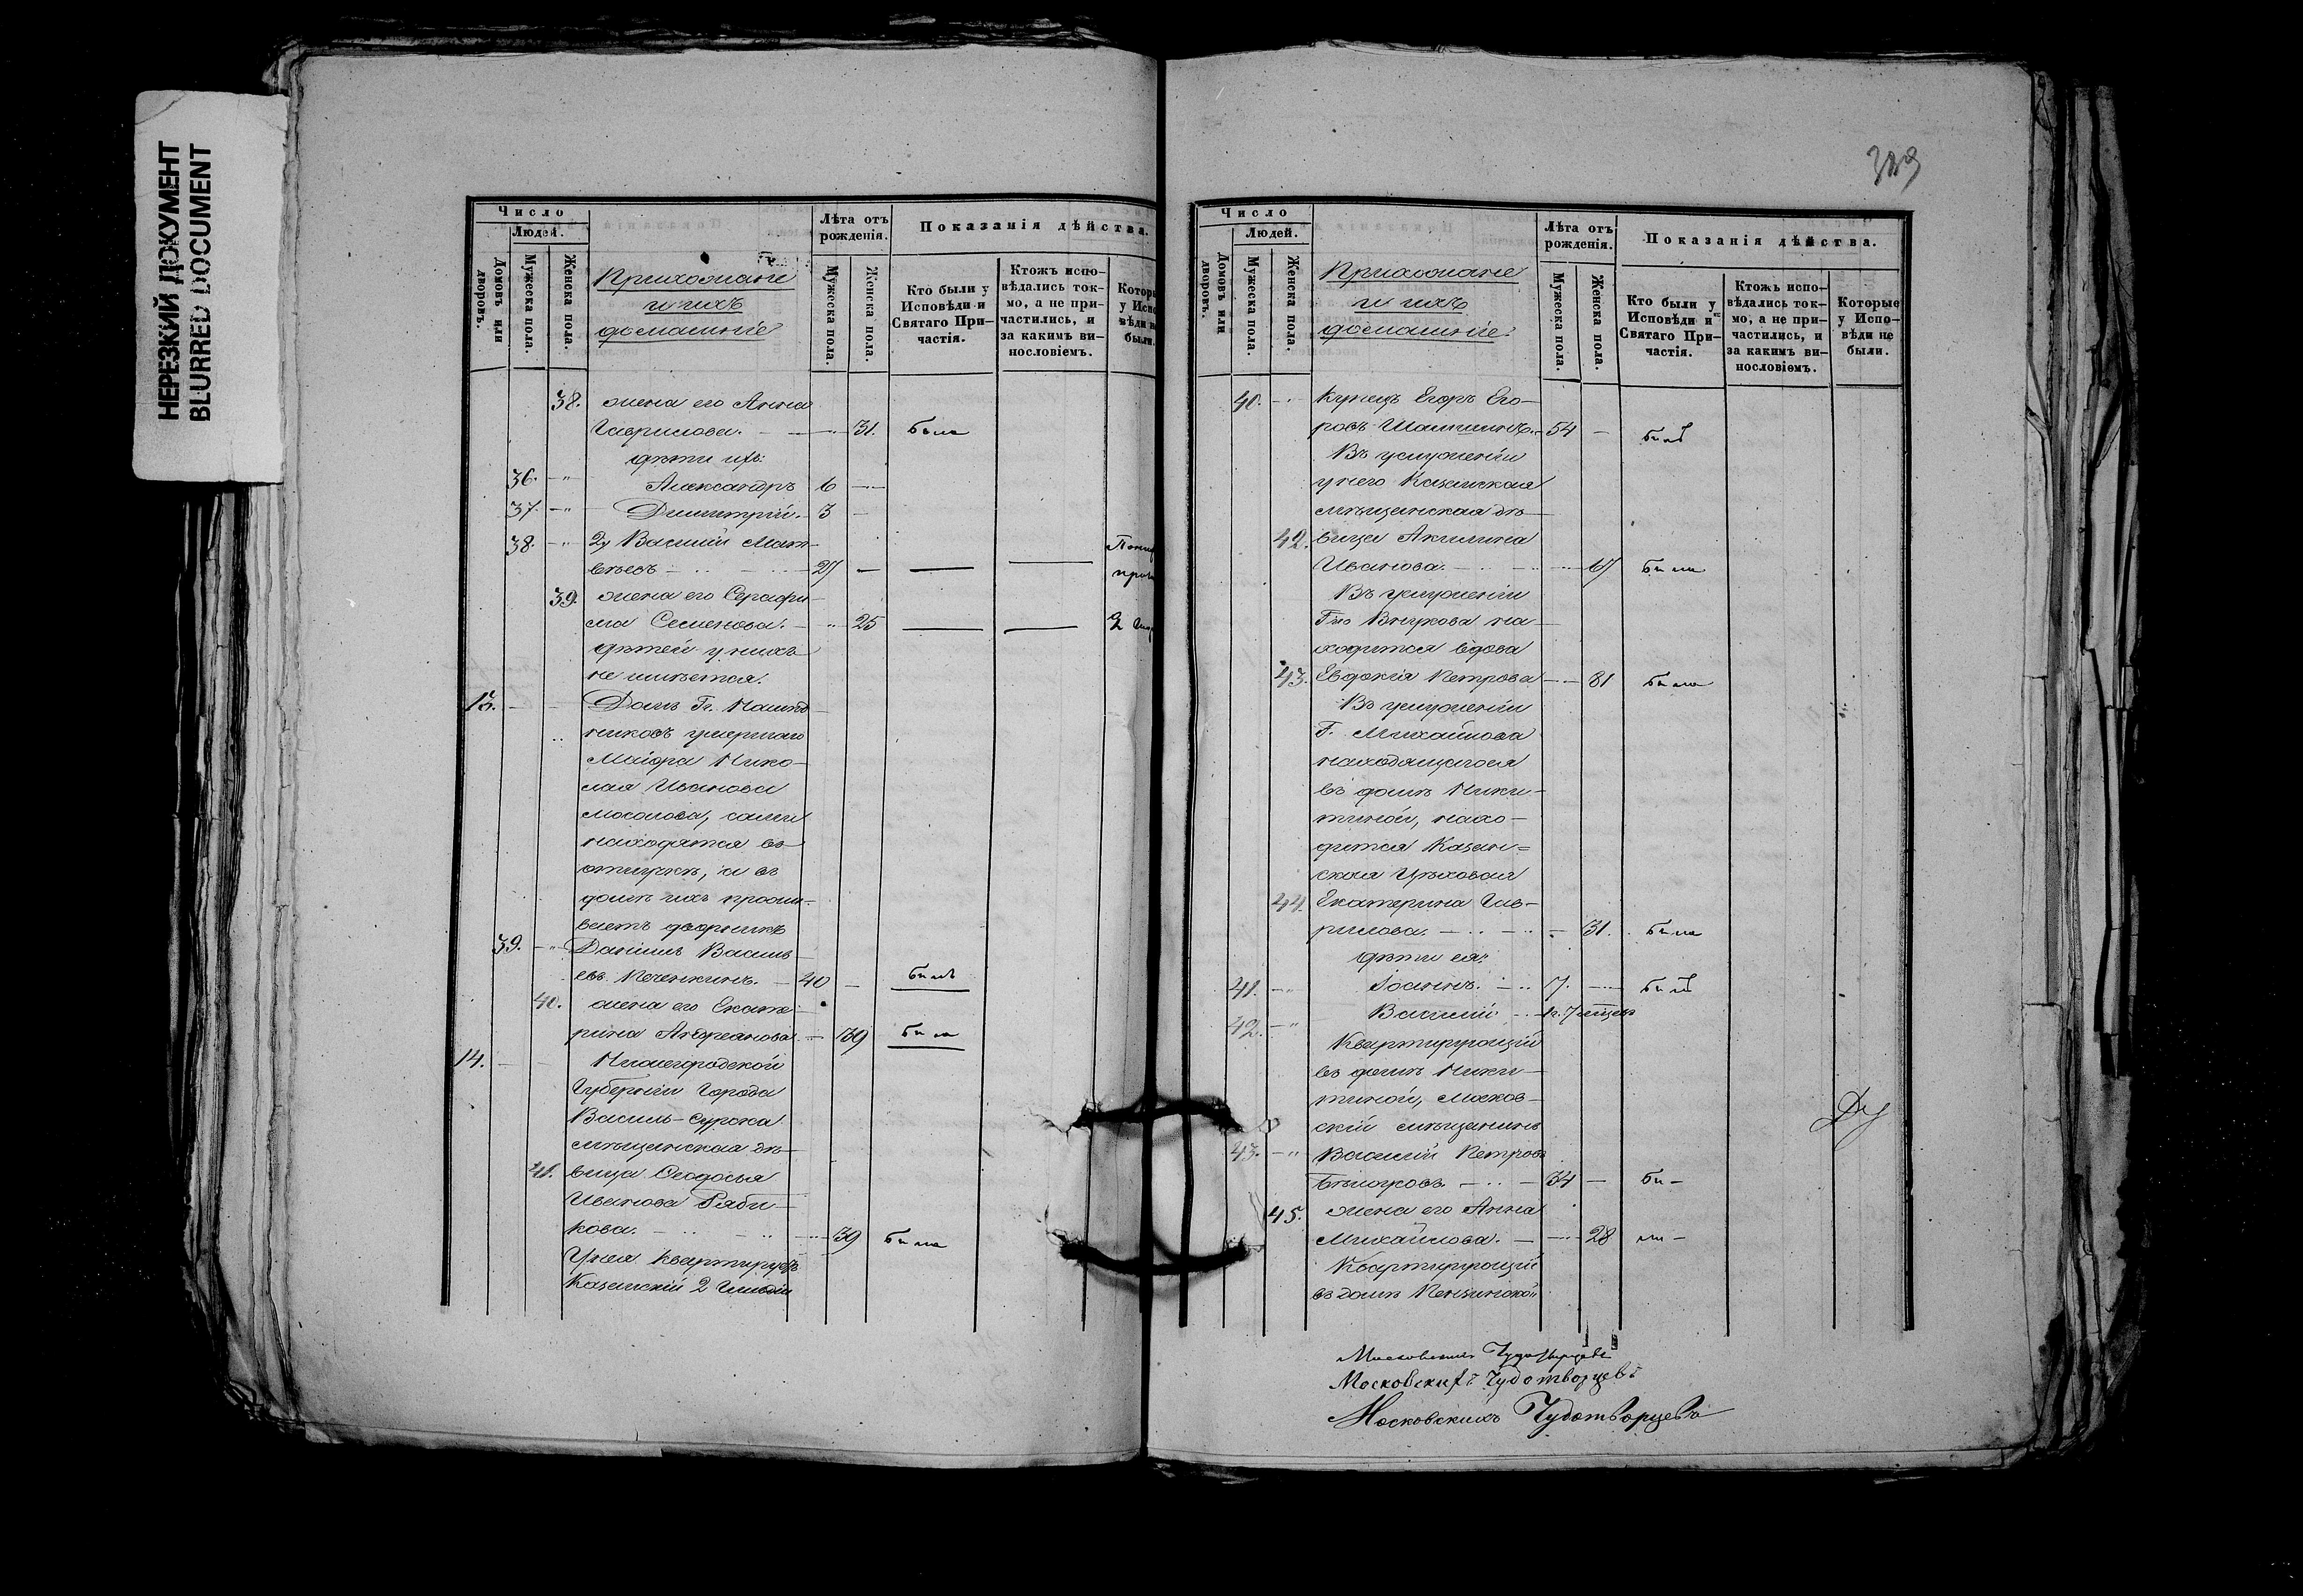 НЕРЕЗКИЙ ДОКУМЕНТ
BLURRED DOCUMENT
Число
Людей.
Домовъ или дворовъ.
Мужеска пола.
Женска пола.
Прихожане
и ихъ
домашніе
Лѣта отъ рожденія.
Мужеска пола.
Женска пола.
Показанія дѣйства.
Кто были у Исповѣди и Святаго При-
частія.
Ктожъ испо-
вѣдались ток-
мо, а не при-
частились, и
за какимъ ви-
нословіемъ.
38. жена его Анна
Гаврилова. 31. была
дѣти ихъ:
36. Александръ 6
37. Димитрій. 3
38. 2, Василій Мат-
вѣевъ 27
39. жена его Серафи-
ма Семенова. 25
дѣтей у нихъ
не имѣется.
Домъ Гг.
умершаго
Маіора Нико-
лая Иванова
Мосолова, сами
находятся въ
а въ
домѣ ихъ прожи-
ваетъ дворникъ
39. Даніилъ Василь-
евъ Печенкинъ. 40 былъ
40. жена его Екате-
рина Андреанова 39 была
14. Нижегородской
Губерніи Города
Василь-Сурска
мѣщанская дѣ-
41. вица Ѳеодосья
Иванова Ряби-
кова. 39 была
У нея квартируетъ
Казанскій 2 Гильдіи
Число
Людей.
Домовъ или дворовъ.
Мужеска пола.
Женска пола.
Прихожане
и ихъ
домашніе
Лѣта отъ рожденія.
Мужеска пола.
Женска пола.
Показанія дѣйства.
Кто были у
Исповѣди и
Святаго При-
частія.
Ктожъ испо-
вѣдались ток-
мо, а не при-
частились, и
за какимъ ви-
нословіемъ.
Которые
у Испо-
вѣди не
были.
40. купецъ Егоръ Его-
ровъ 54 былъ
Въ услуженіи
у него Казанская
мѣщанская дѣ-
42. вица Акилина
Иванова. 67 была
Въ услуженіи
Внукова на-
ходится вдова
43. Евдокія Петрова 81 была
Въ услуженіи
Г. Михайлова
находящагося
въ домѣ Ники-
тиной, нахо-
дится Казан=
ская Цѣховая
44. Екатерина Гав-
рилова. 31. была
дѣти ея:
41. Іоаннъ. 7. былъ
42. Василій
Квартирующій
въ домѣ Ники-
тиной, Москов-
скій мѣщанинъ
43. Василій Петровъ
34 бы-
45. жена его Анна
Михайлова. 28 ли-
Квартирующій
въ домѣ
Московскихъ Чудотворцевъ
Московскихъ Чудотворцевъ
Московскихъ Чудотворцевъ